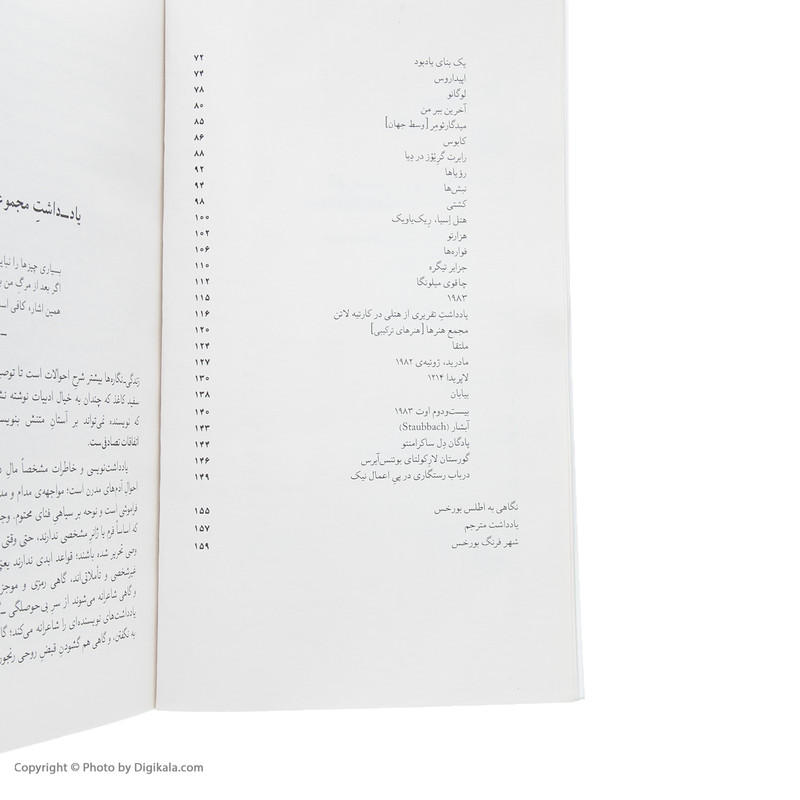 یک بنای یادبود ۷۲
اپیداروس ۷۴
لوگانو ۷۸
آخرین ببر من ۸۰
میدگارثومر [وسط جهان] ۸۵
کابوس ۸۶
رابرت گریوز در دیا ۸۸
رؤیاها ۹۲
نبش‌ها ۹۴
کشتی ۹۸
هتل اِسیا، ریک‌یاویک ۱۰۰
هزارتو ۱۰۲
فواره‌ها ۱۰۶
جزایر تیگره ۱۱۰
چاقوی میلونگا ۱۱۲
۱۹۸۳ ۱۱۵
یادداشتِ تقریری از هتلی در کارتیه لاتن ۱۱۶
مجمع هنرها [هنرهای ترکیبی] ۱۲۰
ملتقا ۱۲۴
مادرید، ژوئیه‌ی ۱۹۸۲ ۱۲۷
لاپریدا ۱۲۱۴ ۱۳۰
بیابان ۱۳۸
بیست‌ودوم اوت ۱۹۸۳ ۱۴۰
آبشار (Staubbach) ۱۴۳
یادگان دِل ساکرامنتو ۱۴۴
گورستان لارکولتای بوئنس‌آیرس ۱۴۶
درباب رستگاری در پیِ اعمال نیک ۱۴۹
نگاهی به اطلس بورخس ۱۵۵
یادداشت مترجم ۱۵۷
شهر فرنگ بورخس ۱۵۹
یادــداشتِ
بسیاری چیزها را
اگر بعد از مرگِ من
همین اشاره کافی
زندگی‌نگاره‌ها بیشتر شرح احوالات است تا
سفید کاغذ که چندان به خیال ادبیات نوشته
که نویسنده نمی‌تواند بر آستان متنش
اتفاقات تصادفی‌ست.
یادداشت‌نویسی و خاطرات مشخصاً مالِ
احوال آدم‌های مدرن است؛ مواجهه‌ی مدام و
فراموشی است و نوحه بر سیاهی فنای محتوم.
که اساساً فرم یا ژانر مشخصی ندارند، حتی وقتی
وصی تحریر شده باشند؛ قواعد ابدی ندارند
غیرشخصی و تأملاتی‌اند، گاهی رمزی و
و گاهی شاعرانه می‌شوند از سرِ بی‌حوصلگی
یادداشت‌های نویسنده‌ای را شاعرانه می‌کند؛
به نگفتن، و گاهی هم گشودنِ قبضِ روحی
Copyright © Photo by Digikala.com